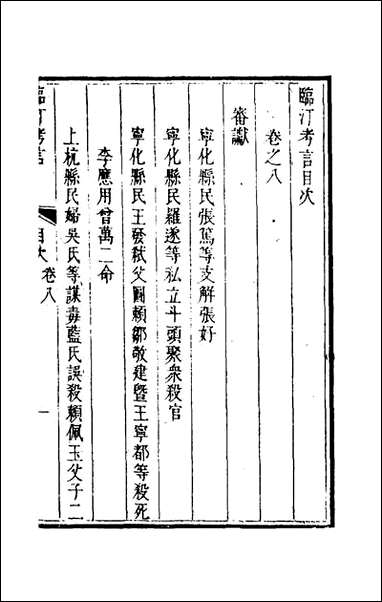 臨汀考言目次
卷之八
審讞
寧化縣民張篤等支解張好
寧化縣民羅遂等私立斗頭聚衆殺官
寧化縣民王發弒父圖賴鄒敬建曁王寧都等殺死
李應用曾萬二命
上杭縣民婦吳氏等謀毒藍氏誤殺賴佩玉父子二
臨汀考言
目次 卷八
一